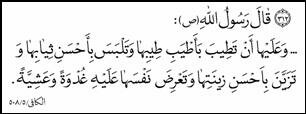 ﴿٣١٢﴾ قَالَ رَسُولُ اللهِ (ص):
... وَعَلَيْهَا أَنْ تَطِيبَ بِأَطْيَبِ طِيبِهَا وَتَلْبَسَ بِأَحْسَنِ ثِيَابِهَا وَ
تَزَيَّنَ بِأَحْسَنِ زِينَتِهَا وَتَعْرِضَ نَفْسَهَا عَلَيْهِ غُدْوَةً وَعَشِيَّةً.
الكافي/٥/٥٠٨